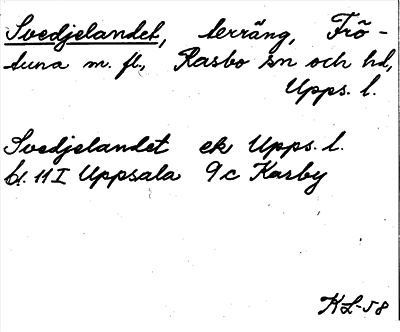 Svedjelandet, terräng, Frö-
tuna m. fl., Rasbo sn och hd,
Upps. l.
Svedjelandet ek Upps. l.
bl. 11 I Uppsala 9c Karby
KL-58